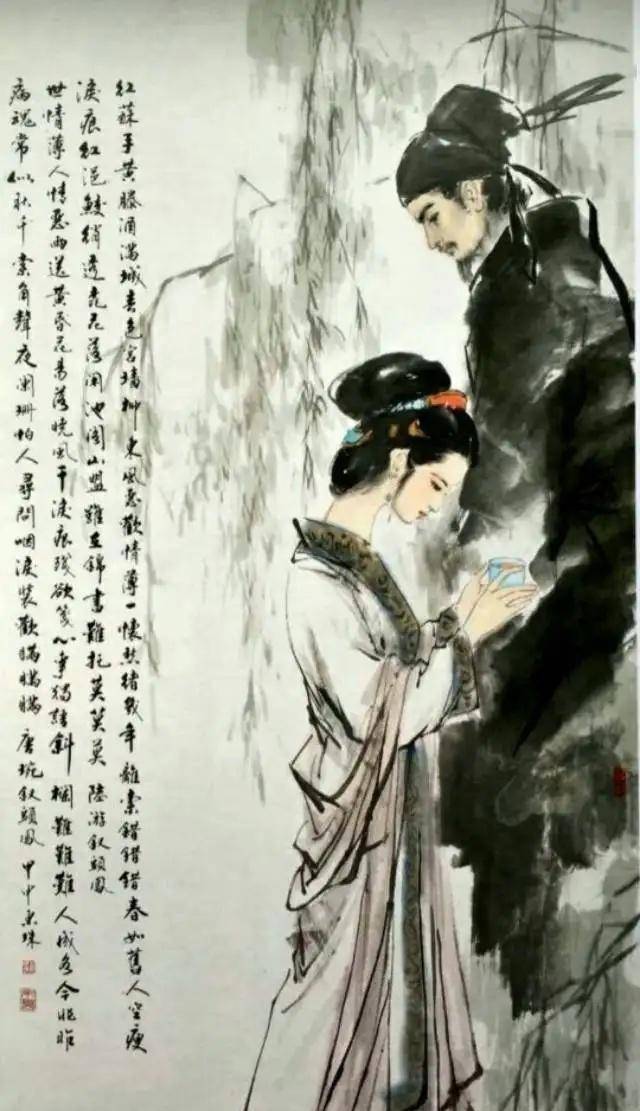 红蘇手黄滕酒滿城春色宮墻柳東風惡歡情薄一懷愁緒幾年離索錯錯錯春如舊人空瘦
淚痕紅浥鮫綃透桃花落閑池閣山盟雖在錦書難托莫莫莫 陸游釵頭鳳
世情薄人情惡雨送黃昏花易落曉風干淚痕殘欲箋心事獨語斜欄難難難人成各今非昨
病魂常似秋千索角聲夜闌珊怕人尋問咽淚裝歡瞞瞞瞞 唐琬釵頭鳳 甲申 珠